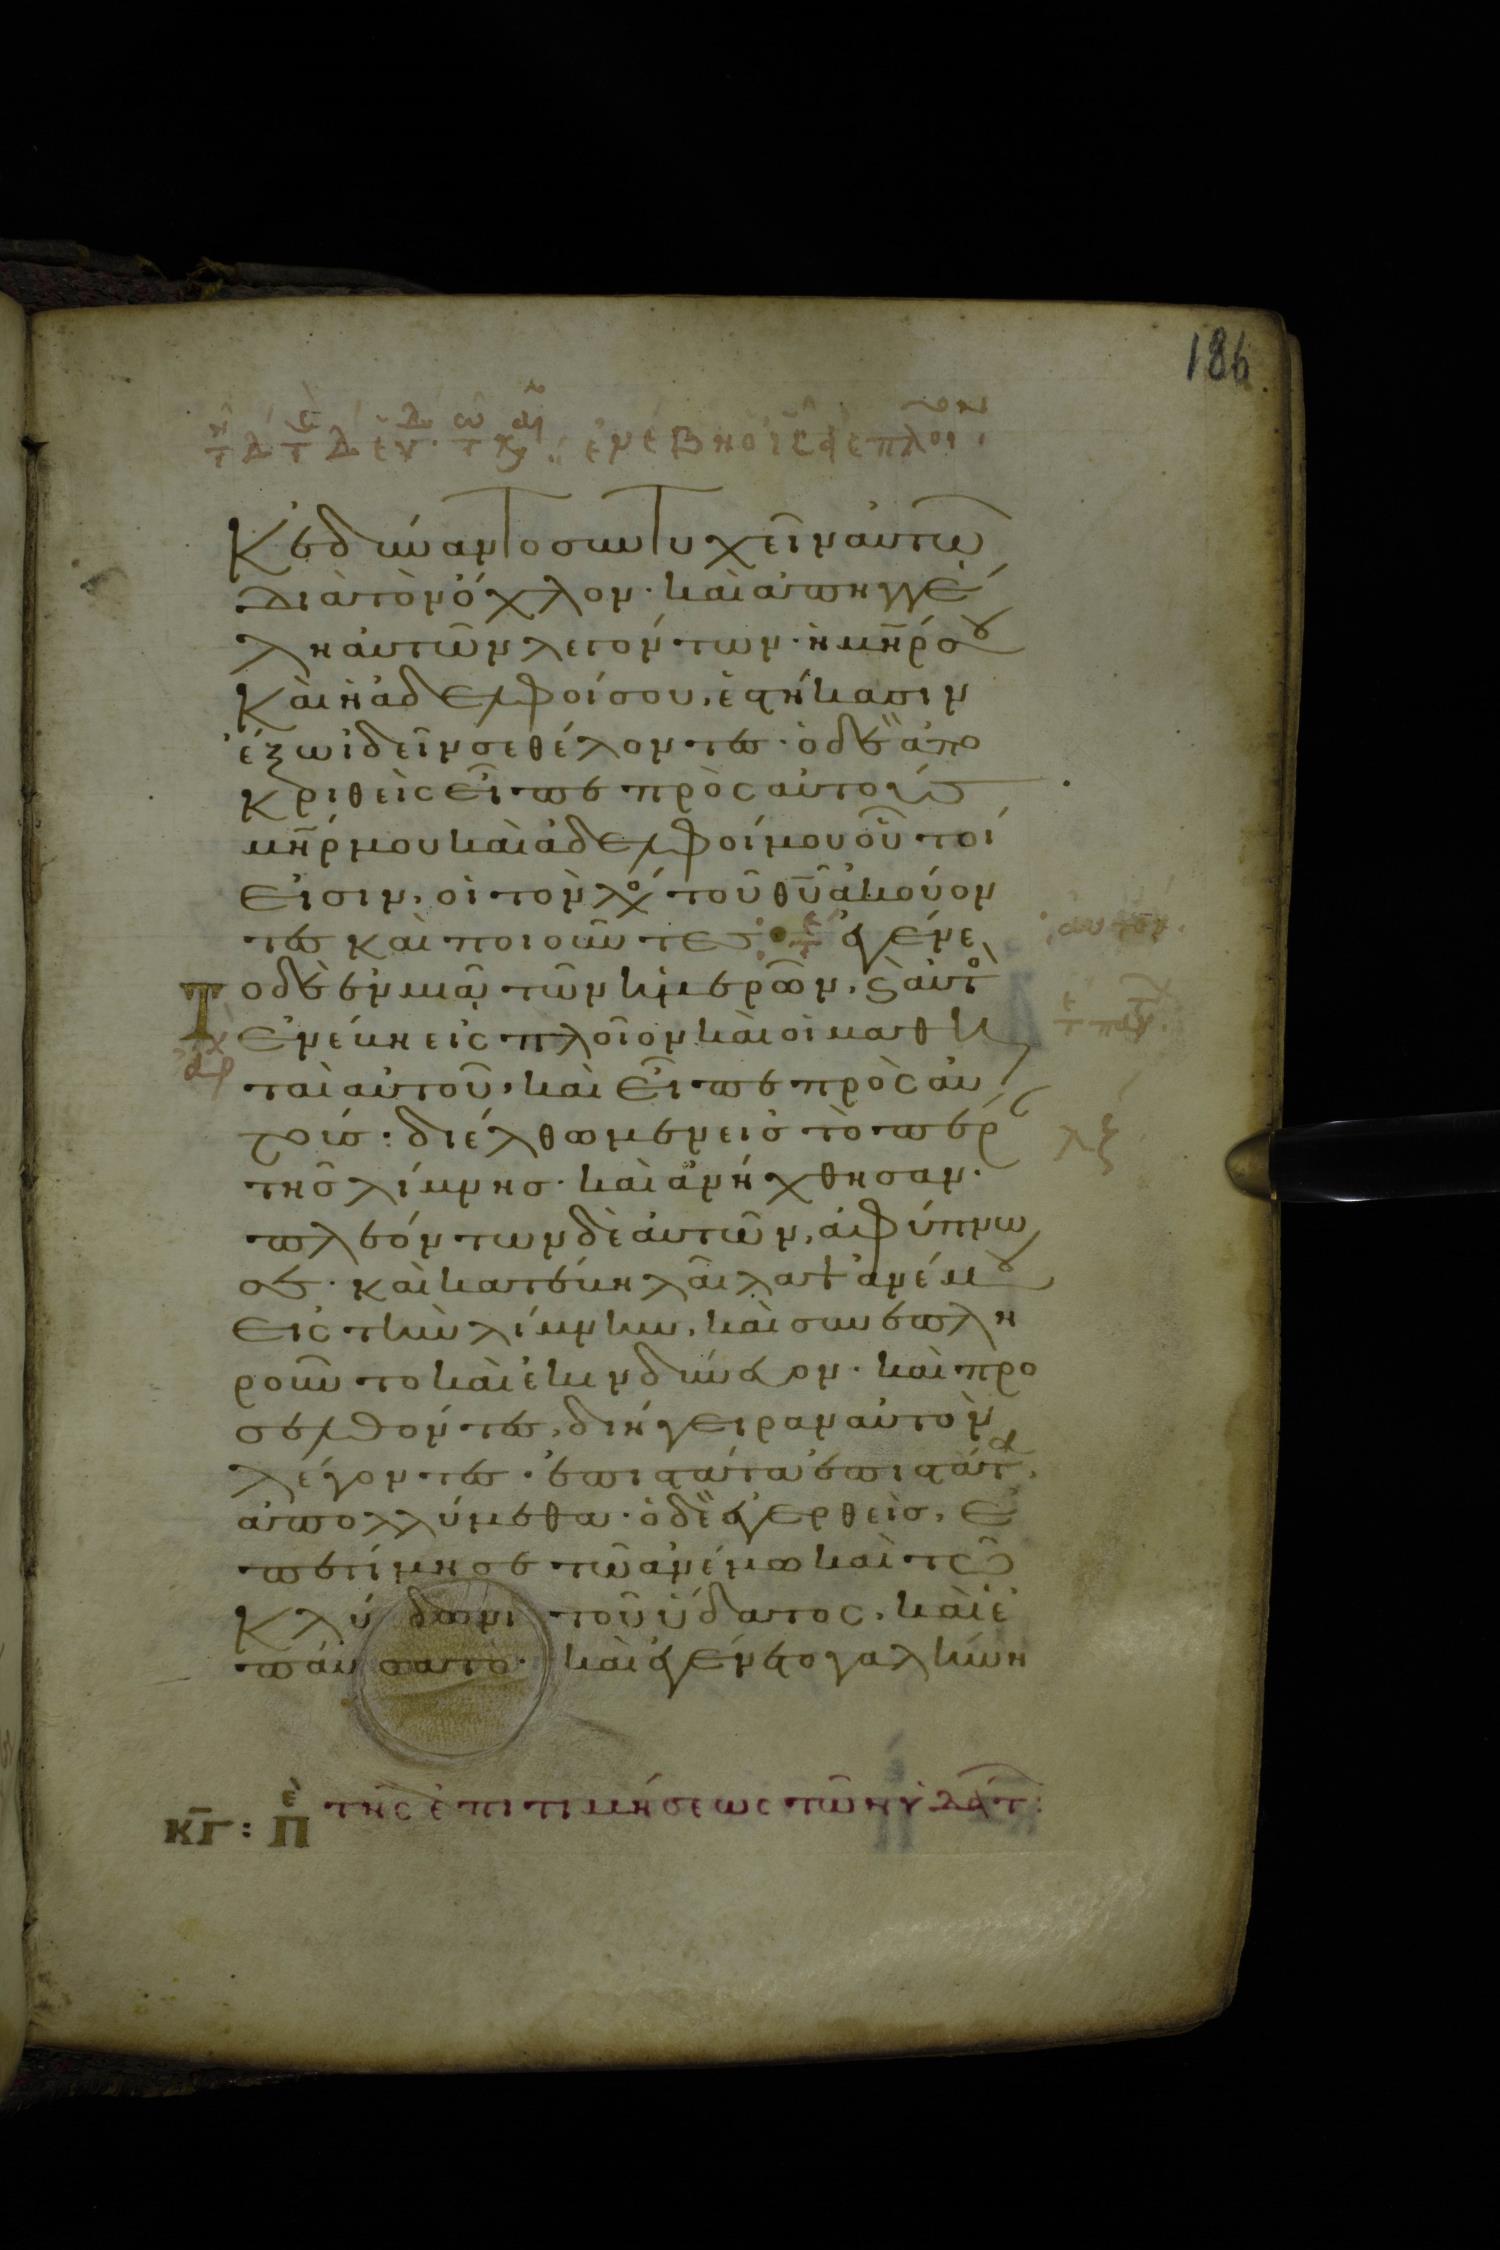 186
ἐνέβη ὁ ις εἰς πλοῖ.
κ ἐδύναντο συντυχεῖν αὐτῶ
διὰ τὸν ὄχλον· καὶ ἀπηγγέ
λη αὐτῶν λεγόντων· ἡ μηρ σου
καὶ ἡ ἀδελφοί σου, ἑστήκασιν
ἔξω ἰδεῖν σε θέλοντες· ὁ δὲ ἀπο
κριθεὶς εἶπε πρὸς αὐτούς
μηρ μου καὶ ἀδελφοί μου οὗτοί
εἰσιν, οἱ τὸν λόγ τοῦ θυ ἀκούον
τες καὶ ποιοῦντες· ἐγένε
το δὲ ἐν μιᾶ τῶν ἡμερῶν, καὶ αὐτὸ
ἐνέβη εἰς πλοῖον καὶ οἱ μαθη
ταὶ αὐτοῦ, καὶ εἶπε πρὸς αὐ
τούς· διέλθωμεν εἰς τὸ πέρ
τῆς λίμνης· καὶ ἀνήχθησαν·
πλεόντων δὲ αὐτῶν, ἀφύπνω
σε· καὶ κατέβη λαῖλαψ ἀνέμου
εἰς τὴν λίμνην, καὶ συνεπλη
ροῦντο καὶ ἐκινδύνευον· καὶ προ
σελθόντες, διήγειραν αὐτὸν
λέγοντες· ἐπιστάτα ἐπιστάτα,
ἀπολλύμεθα· ὁ δὲ ἐγερθεὶς, ἐ
πετίμησε τῶ ἀνέμω καὶ τῶ
κλύδωνι τοῦ ὕδατος, καὶ ἐ
παύσατο· καὶ ἐγένετο γαλήνη
κγ: πε τῆς ἐπιτιμήσεως τῶν ὑδάτ: